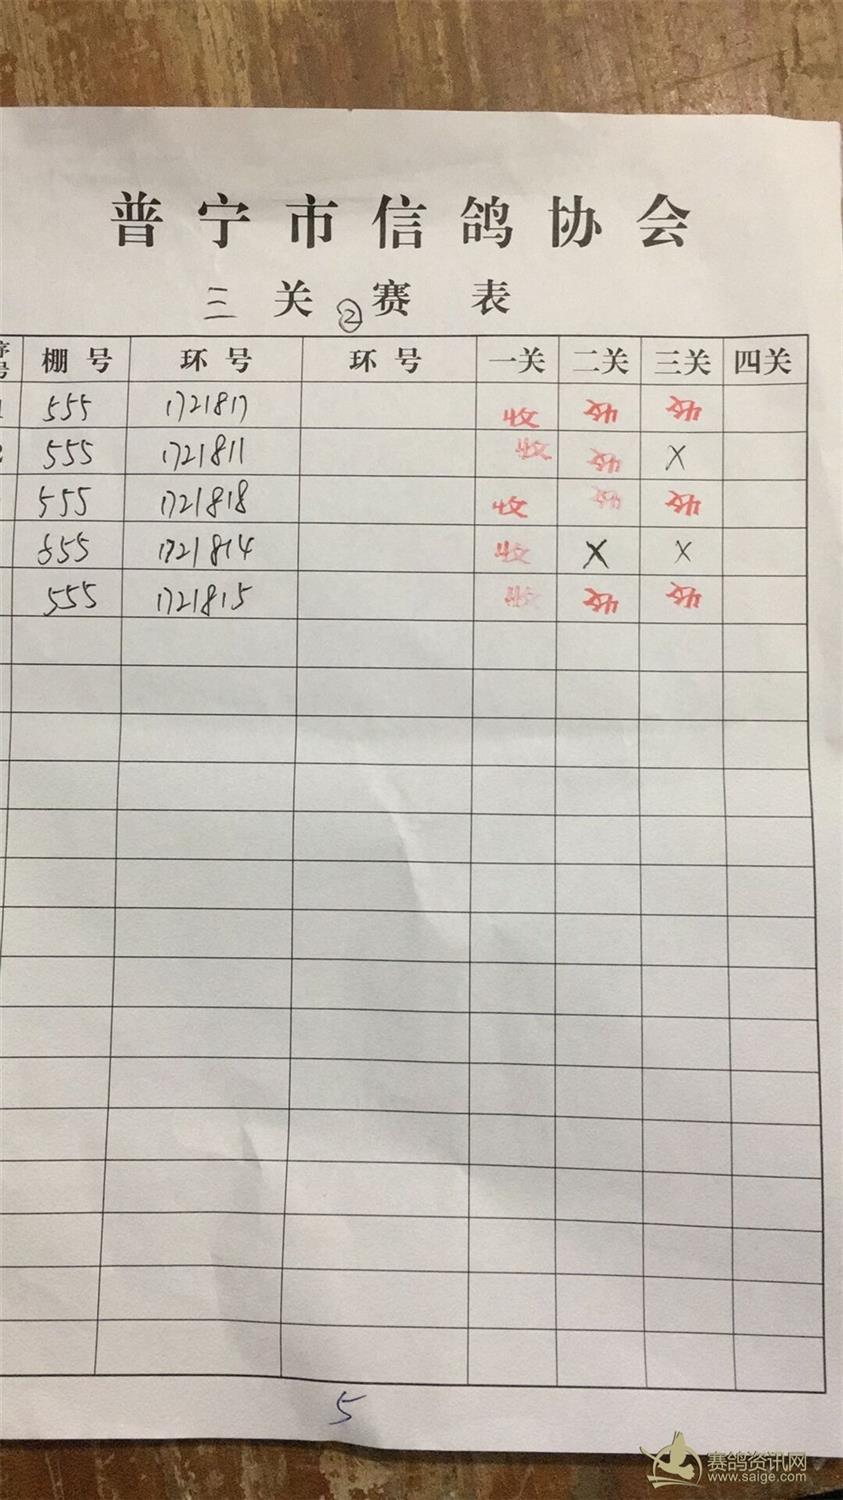 普宁市信鸽协会
三关②赛表
序号 棚号 环号 环号 一关 二关 三关 四关
1 555 1721817 收 收 收
2 555 1721811 收 收 X
555 1721818 收 收 收
555 1721814 收 X X
555 1721815 收 收 收
5
赛鸽资讯网
www.saige.com